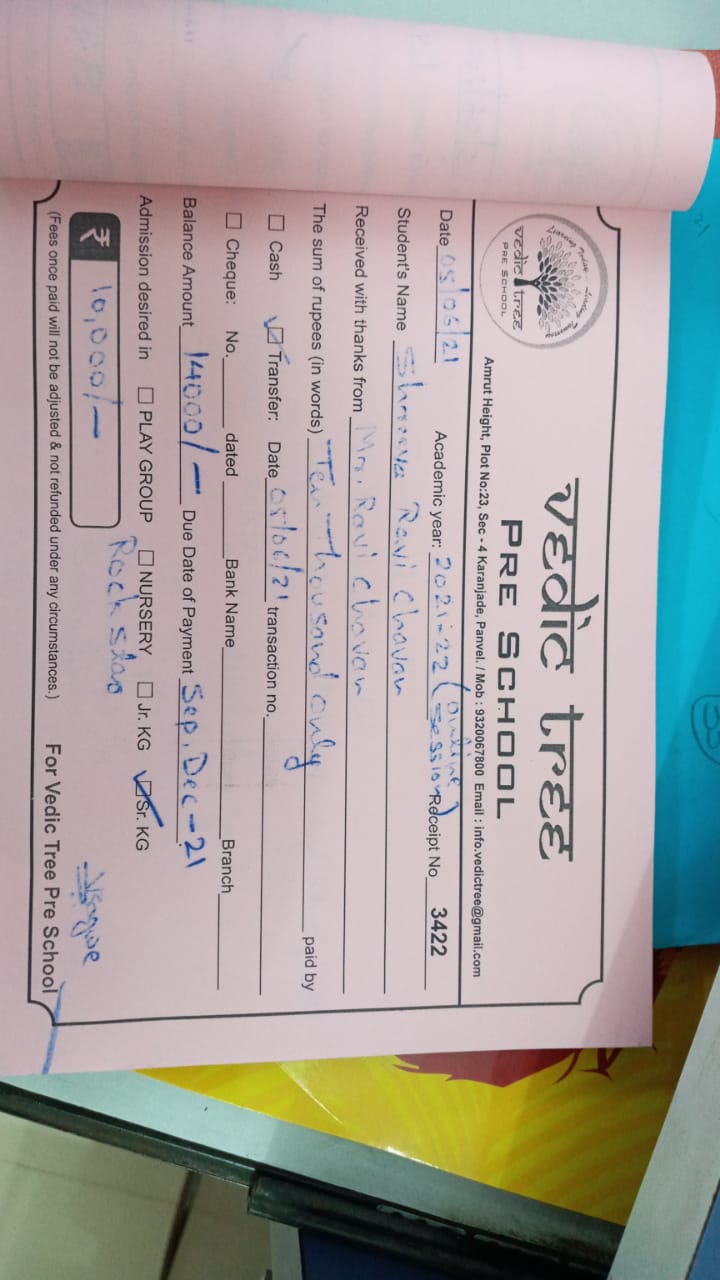 vedic tree
PRE SCHOOL
Learning Today Leading Tomorrow
vedic tree
PRE SCHOOL
Amrut Height, Plot No:23, Sec - 4 Karanjade, Panvel. / Mob : 9320067800 Email : info.vedictree@gmail.com
Date 05/06/21 Academic year: 2021-22 (Online Session) Receipt No 3422
Student's Name Ravi Chavan
Received with thanks from Mr. Ravi Chavan
The sum of rupees (in words) Ten Thousand only paid by
Cash Transfer: Date 05/06/21 transaction no.
Cheque: No. dated Bank Name Branch
Balance Amount 14000/- Due Date of Payment Sep, Dec-21
Admission desired in PLAY GROUP NURSERY Jr. KG Sr. KG
Rockstar
₹ 10,000/-
(Fees once paid will not be adjusted & not refunded under any circumstances.) For Vedic Tree Pre School